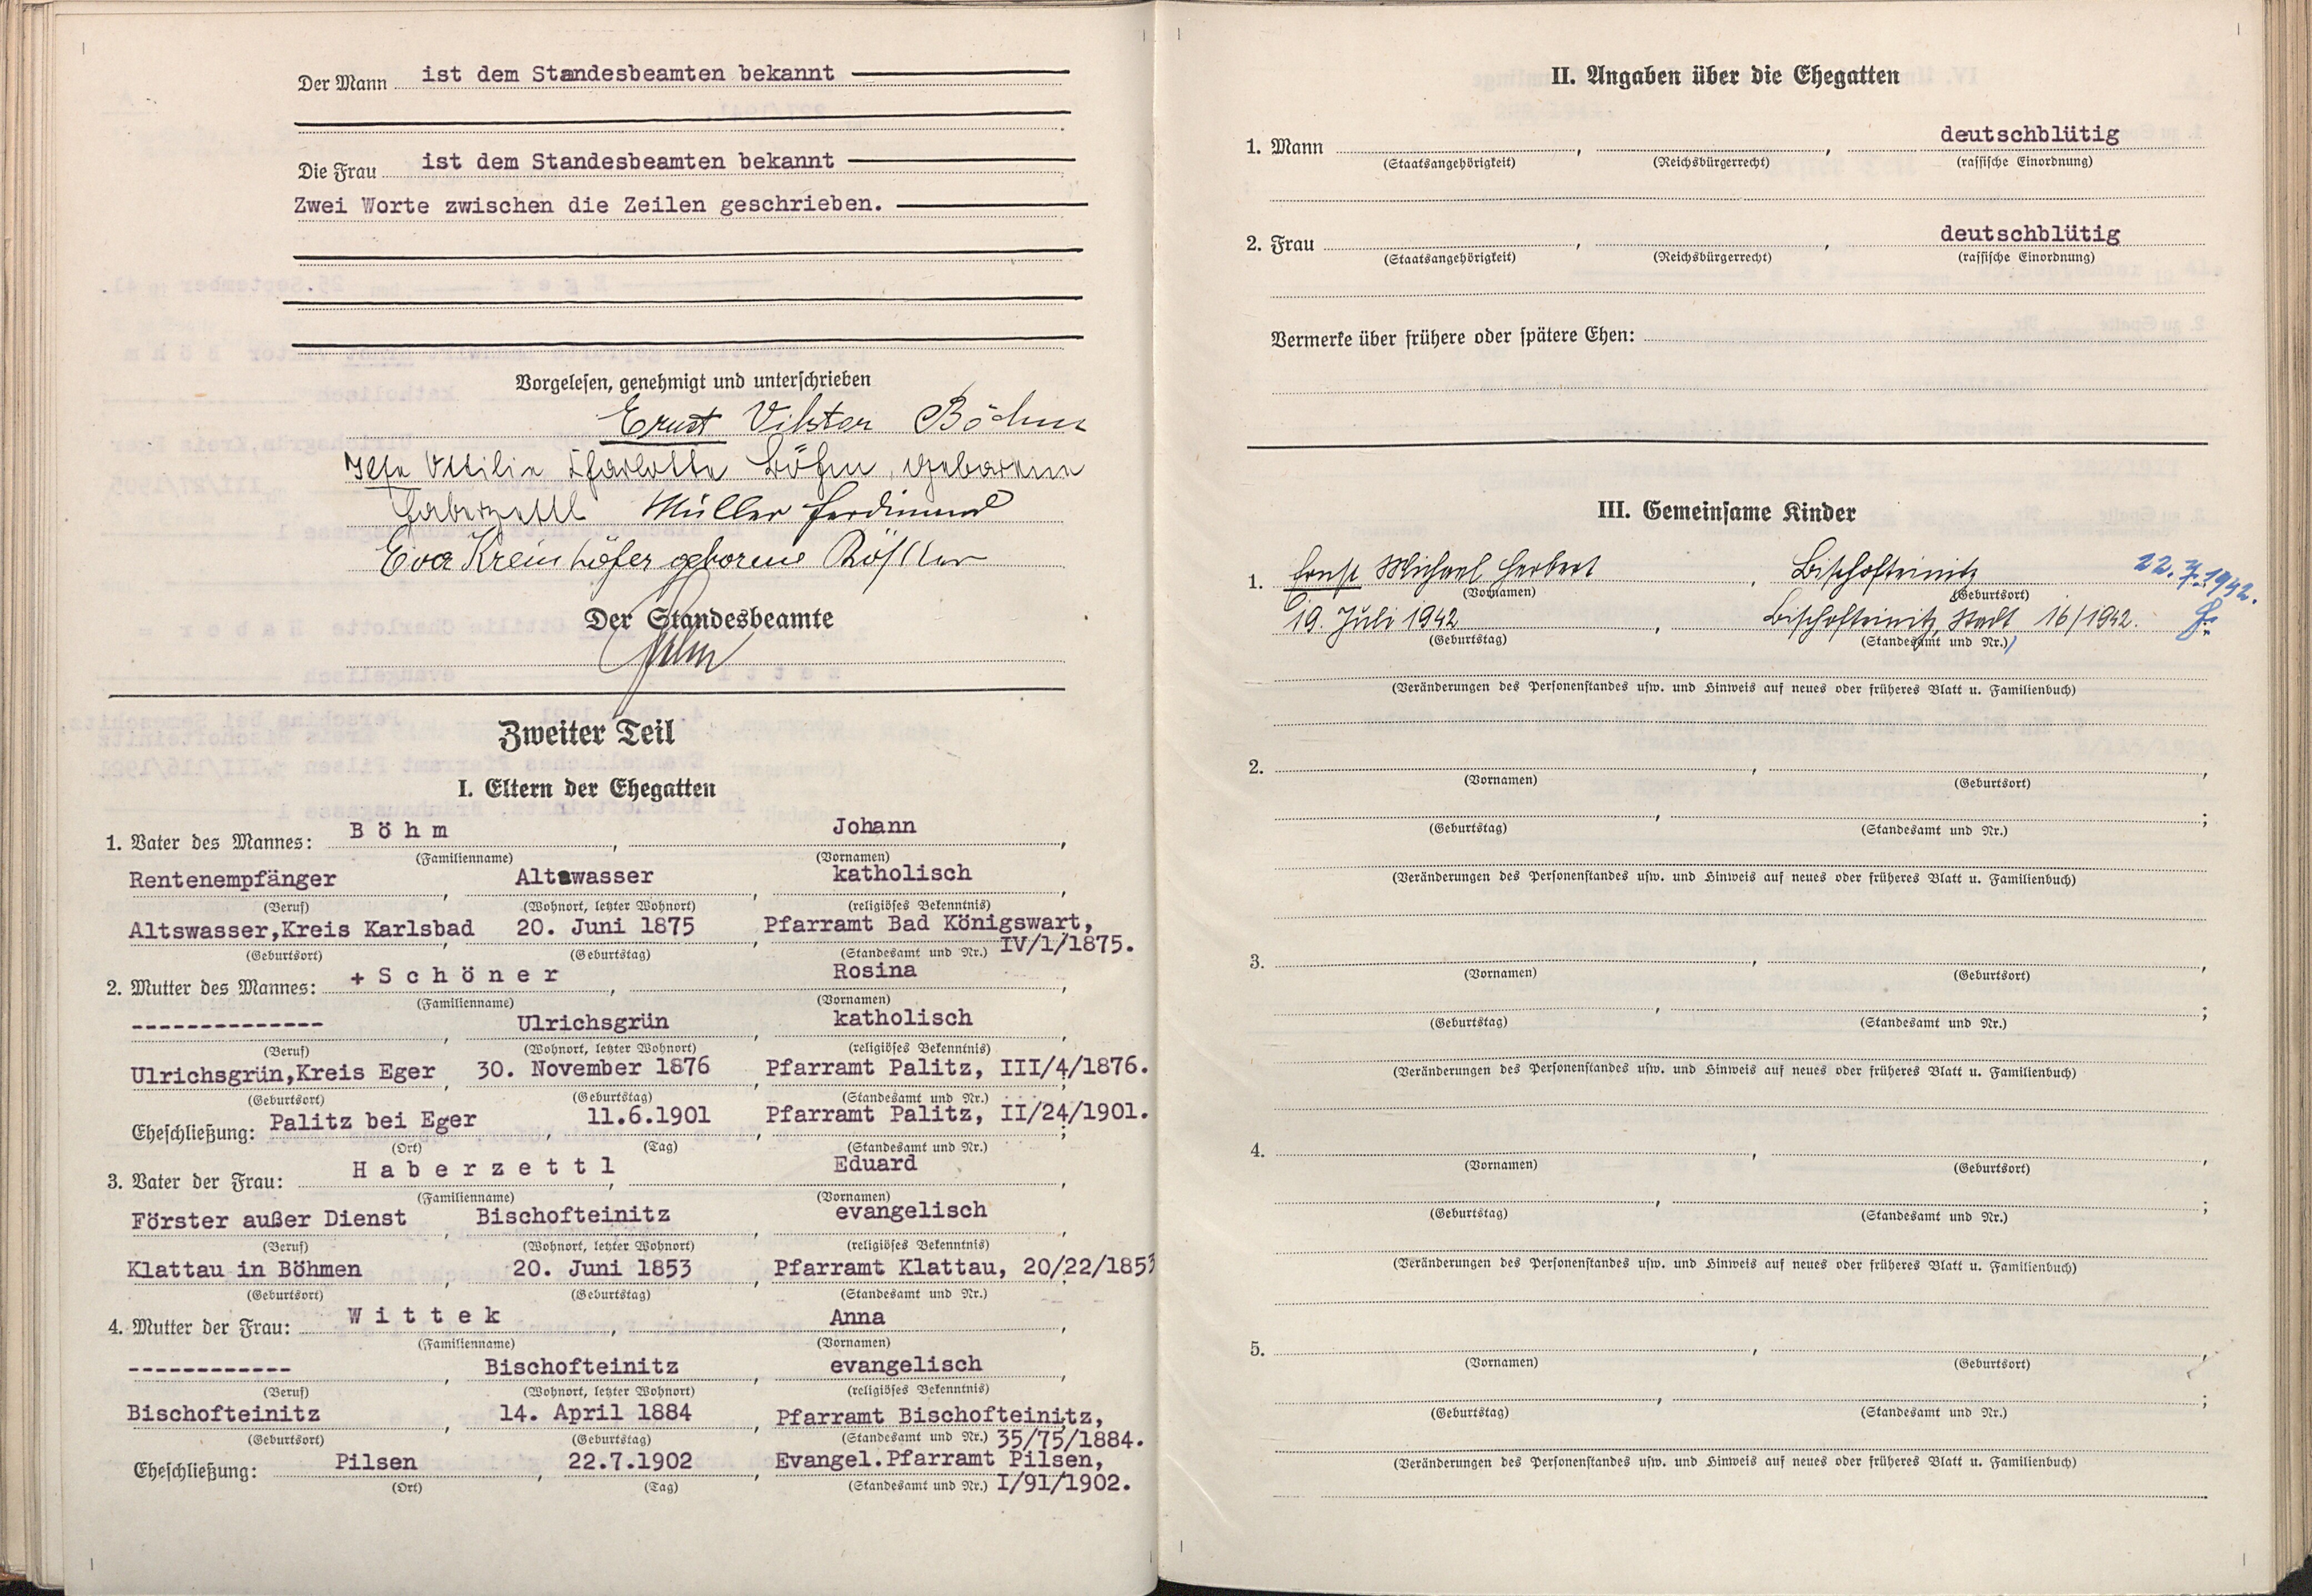 Der Mann ist dem Standesbeamten bekannt
Die Frau ist dem Standesbeamten bekannt
Zwei Worte zwischen die Zeilen geschrieben.
Vorgelesen, genehmigt und unterschrieben
Ernst Viktor Böhm
Ottilie Charlotte Böhm, geborene
Haberzettl Müller Ferdinand
Eva Kreinhöfer geborene Rößler
Der Standesbeamte
Zweiter Teil
I. Eltern der Ehegatten
1. Vater des Mannes: Böhm, Johann,
(Familienname) (Vornamen)
Rentenempfänger, Altswasser, katholisch,
(Beruf) (Wohnort, letzter Wohnort) (religiöses Bekenntnis)
Altswasser, Kreis Karlsbad, 20. Juni 1875, Pfarramt Bad Königswart,
(Geburtsort) (Geburtstag) (Standesamt und Nr.) IV/1/1875.
2. Mutter des Mannes: + Schöner, Rosina,
(Familienname) (Vornamen)
--------------, Ulrichsgrün, katholisch,
(Beruf) (Wohnort, letzter Wohnort) (religiöses Bekenntnis)
Ulrichsgrün, Kreis Eger, 30. November 1876, Pfarramt Palitz, III/4/1876.
(Geburtsort) (Geburtstag) (Standesamt und Nr.)
Eheschließung: Palitz bei Eger, 11.6.1901, Pfarramt Palitz, II/24/1901.;
(Ort) (Tag) (Standesamt und Nr.)
3. Vater der Frau: Haberzettl, Eduard,
(Familienname) (Vornamen)
Förster außer Dienst, Bischofteinitz, evangelisch,
(Beruf) (Wohnort, letzter Wohnort) (religiöses Bekenntnis)
Klattau in Böhmen, 20. Juni 1853, Pfarramt Klattau, 20/22/1853
(Geburtsort) (Geburtstag) (Standesamt und Nr.)
4. Mutter der Frau: Wittek, Anna,
(Familienname) (Vornamen)
------------, Bischofteinitz, evangelisch,
(Beruf) (Wohnort, letzter Wohnort) (religiöses Bekenntnis)
Bischofteinitz, 14. April 1884, Pfarramt Bischofteinitz,
(Geburtsort) (Geburtstag) (Standesamt und Nr.) 35/75/1884.
Eheschließung: Pilsen, 22.7.1902, Evangel.Pfarramt Pilsen,
(Ort) (Tag) (Standesamt und Nr.) I/91/1902.
II. Angaben über die Ehegatten
1. Mann , , deutschblütig
(Staatsangehörigkeit) (Reichsbürgerrecht) (rassische Einordnung)
2. Frau , , deutschblütig
(Staatsangehörigkeit) (Reichsbürgerrecht) (rassische Einordnung)
Vermerke über frühere oder spätere Ehen:
III. Gemeinsame Kinder
1. Ernst Michael Herbert, Bischofteinitz 22.7.1942.
(Vornamen) (Geburtsort)
19. Juli 1942, Bischofteinitz, Stadt 16/1942.
(Geburtstag) (Standesamt und Nr.)
(Veränderungen des Personenstandes usw. und Hinweis auf neues oder früheres Blatt u. Familienbuch)
2. , ,
(Vornamen) (Geburtsort)
, ;
(Geburtstag) (Standesamt und Nr.)
(Veränderungen des Personenstandes usw. und Hinweis auf neues oder früheres Blatt u. Familienbuch)
3. , ,
(Vornamen) (Geburtsort)
, ;
(Geburtstag) (Standesamt und Nr.)
(Veränderungen des Personenstandes usw. und Hinweis auf neues oder früheres Blatt u. Familienbuch)
4. , ,
(Vornamen) (Geburtsort)
, ;
(Geburtstag) (Standesamt und Nr.)
(Veränderungen des Personenstandes usw. und Hinweis auf neues oder früheres Blatt u. Familienbuch)
5. , ,
(Vornamen) (Geburtsort)
, ;
(Geburtstag) (Standesamt und Nr.)
(Veränderungen des Personenstandes usw. und Hinweis auf neues oder früheres Blatt u. Familienbuch)